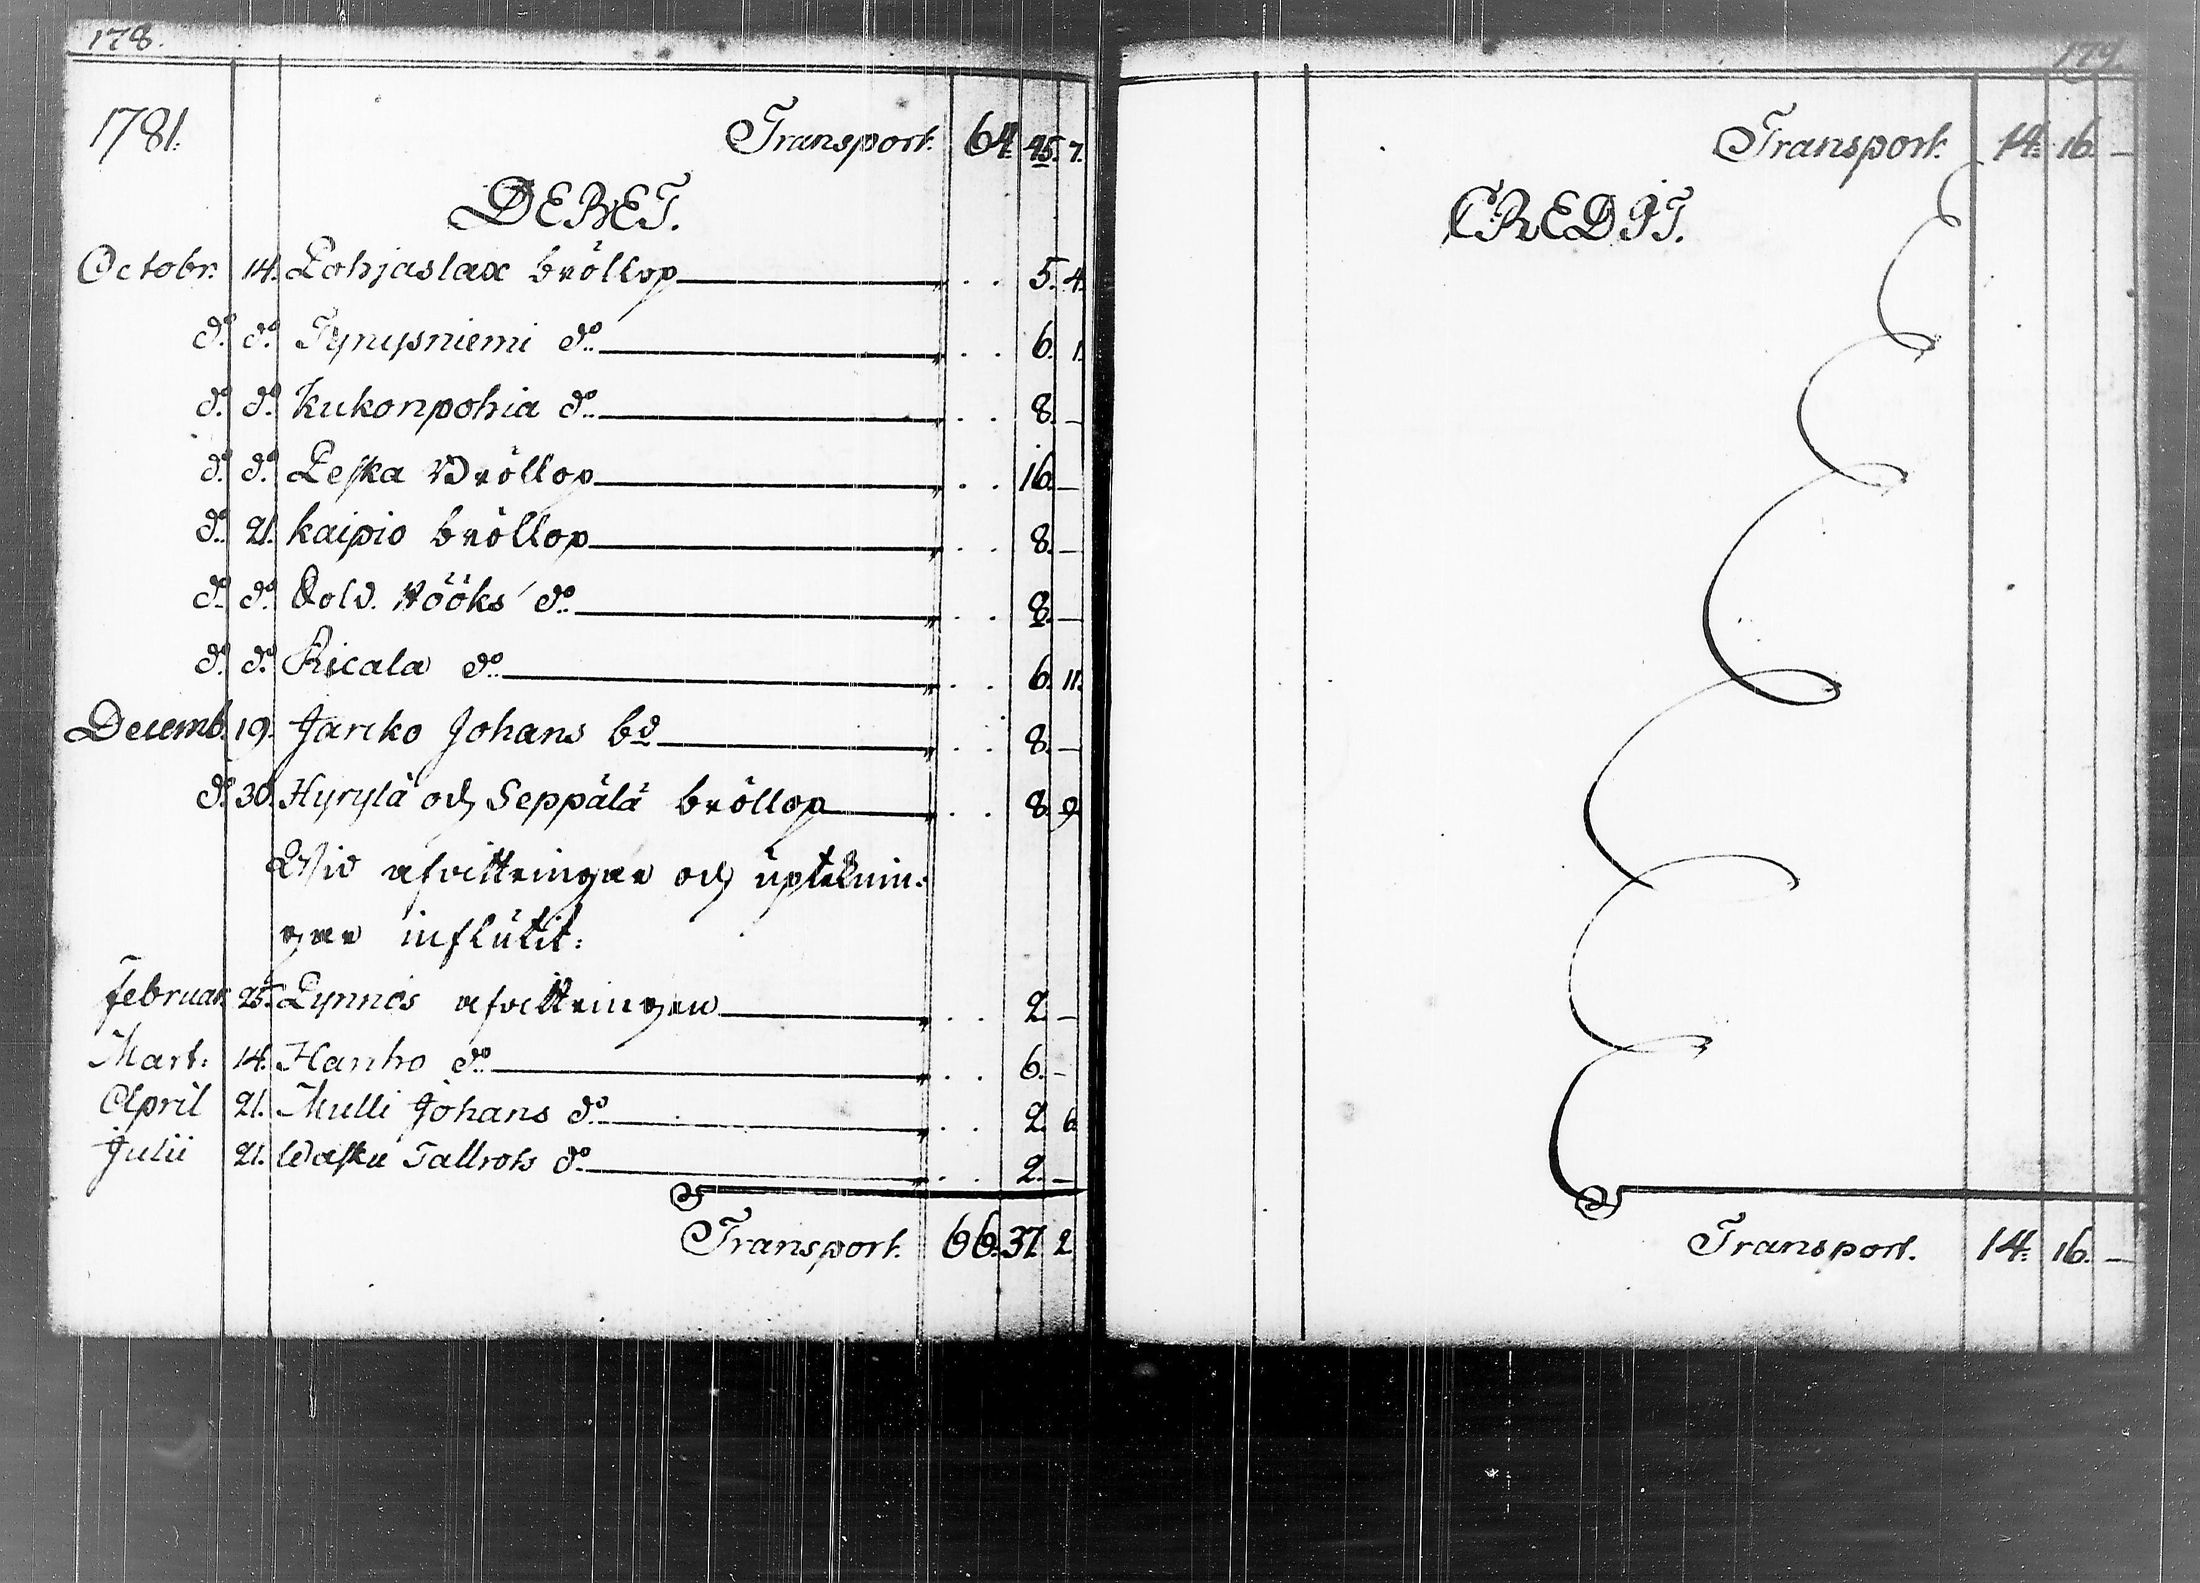 178.
1781. Transport. 64. 45. 7.
DEBET.
Octobr. 14. Pohjaslax bröllop . . 5. 4.
do. do. Tynysniemi do . . 6. 1.
do. do. Kukonpohia do . . 8. —
do. do. Peska Bröllop . . 16. —
do. 21. Kaipio bröllop . . 8. —
do. do. Sold. Rööks do . . 8. —
do. do. Ricala do . . 6. 11.
Decemb. 19. Jarcko Johans bd . . 8. —
do. 30. Hyrylä och Seppälä bröllop . . 8. 9.
Wid afvittringar och upteknin:
gar influtit:
Februar. 25. Lynnös afvittringen . . 2. —
Mart: 14. Hanho do . . 6. –
April 21. Mulli Johans do . . 2. 6
Julii 21. Wasku Tallrots do . . 2. —
Transport. 66. 37. 2
179.
Transport. 14. 16. —
CREDIT.
Transport. 14. 16. —